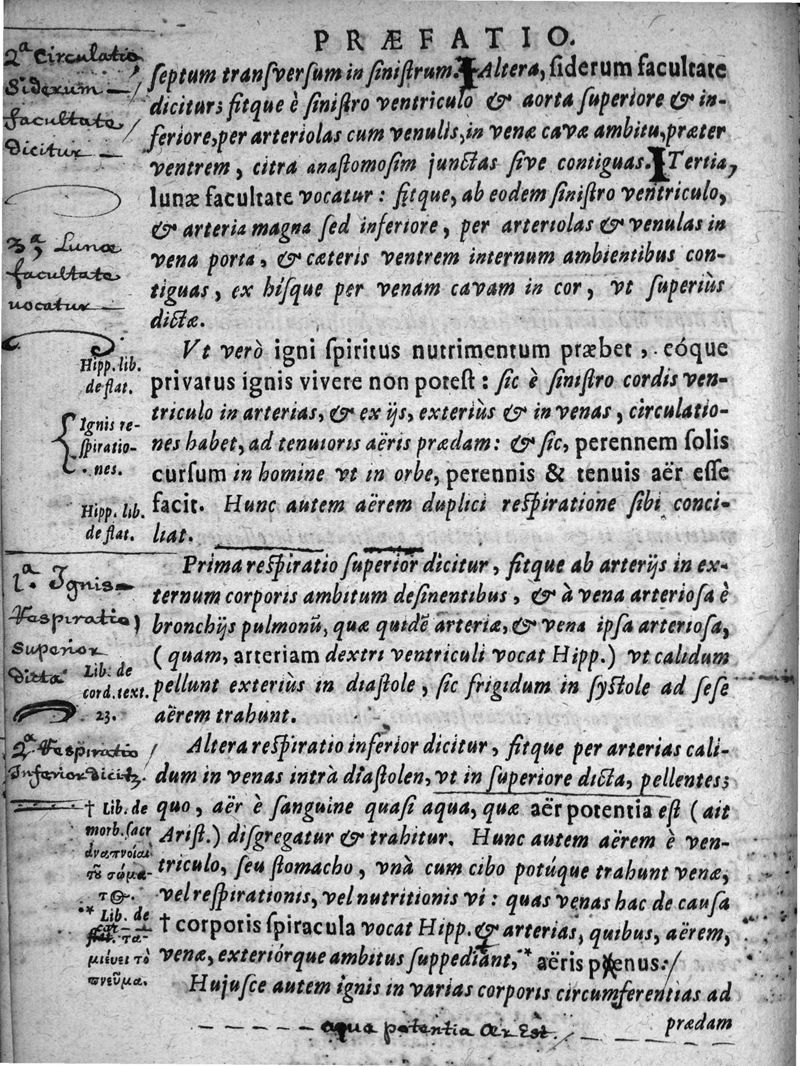 PRÆFATIO.
septum transversum in sinistrum. Altera, siderum facultate
dicitur; fitque è sinistro ventriculo & aorta superiore & in-
feriore, per arteriolas cum venulis, in venæ cavæ ambitu, præter
ventrem, citra anastomosim junctas sive contiguas. Tertia,
lunæ facultate vocatur: fitque, ab eodem sinistro ventriculo,
& arteria magna sed inferiore, per arteriolas & venulas in
vena porta, & cæteris ventrem internum ambientibus con-
tiguas, ex hisque per venam cavam in cor, vt superiùs
dictæ.
Vt verò igni spiritus nutrimentum præbet, eóque
privatus ignis vivere non potest: sic è sinistro cordis ven-
triculo in arterias, & ex ijs, exteriùs & in venas, circulatio-
nes habet, ad tenuioris aëris prædam: & sic, perennem solis
cursum in homine vt in orbe, perennis & tenuis aër esse
facit. Hunc autem aërem duplici respiratione sibi conci-
liat.
Prima respiratio superior dicitur, fitque ab arterijs in ex-
ternum corporis ambitum desinentibus, & à vena arteriosa è
bronchijs pulmonũ, quæ quidẽ arteriæ, & vena ipsa arteriosa,
(quam, arteriam dextri ventriculi vocat Hipp.) vt calidum
pellunt exteriùs in diastole, sic frigidum in systole ad sese
aërem trahunt.
Altera respiratio inferior dicitur, fitque per arterias cali-
dum in venas intrà diastolen, vt in superiore dicta, pellentes;
quo, aër è sanguine quasi aqua, quæ aër potentia est (ait
Arist.) disgregatur & trahitur. Hunc autem aërem è ven-
triculo, seu stomacho, vnà cum cibo potúque trahunt venæ,
vel respirationis, vel nutritionis vi: quas venas hac de causa
† corporis spiracula vocat Hipp. & arterias, quibus, aërem,
venæ, exteriórque ambitus suppediant, * aëris plenus:
Hujusce autem ignis in varias corporis circumferentias ad
prædam
2ª Circulatio
Siderum
facultate
dicitur
3ª Lunæ
facultate
vocatur
Hipp. lib.
de flat.
Ignis re-
spiratio-
nes.
Hipp. lib.
de flat.
1ª Ignis
Respiratio
Superior
dicta
Lib. de
cord. text.
23.
2ª Respiratio
Inferior
† Lib. de
morb. sacr
ἀναπνοίαι
τοῦ σώμα-
τος.
* Lib. de
τα-
μιεύει τὸ
πνεῦμα.
aqua potentia aer Est.